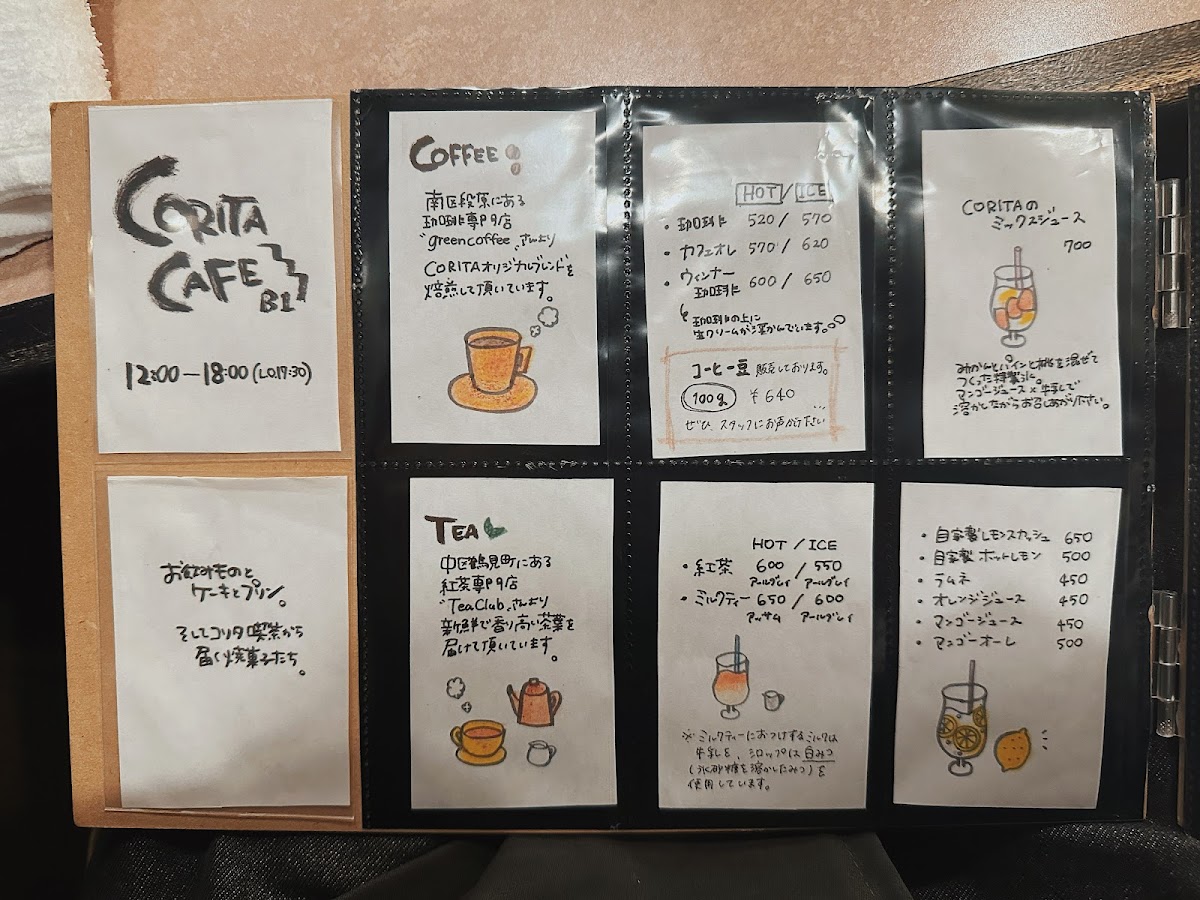 CORITA
CAFE B1
12:00—18:00 (L.O.17:30)
お飲みものと
ケーキとプリン。
そしてコリタ喫茶から
届く焼菓子たち。
COFFEE
南区段原にある
珈琲専門店
"green coffee"さんより
CORITAオリジナルブレンドを
焙煎して頂いています。
HOT / ICE
・珈琲 520 / 570
・カフェオレ 570 / 620
・ウィンナー
珈琲 600 / 650
珈琲の上に
生クリームが浮かんでいます。
コーヒー豆 販売しております。
100g ¥640
ぜひ、スタッフにお声がけ下さい
CORITAの
ミックスジュース
700
みかんとパインと桃を混ぜて
つくった特製氷に。
マンゴージュース×牛乳で
溶かしながらお召しあがり下さい。
TEA
中区鶴見町にある
紅茶専門店
"Tea Club"さんより
新鮮で香り高い茶葉を
届けて頂いています。
HOT / ICE
・紅茶 600 / 550
アールグレイ アールグレイ
・ミルクティー 650 / 600
アッサム アールグレイ
※ミルクティーにおつけするミルクは
牛乳を、シロップは白みつ
(氷砂糖を溶かしたみつ)を
使用しています。
・自家製レモンスカッシュ 650
・自家製ホットレモン 500
・ラムネ 450
・オレンジジュース 450
・マンゴージュース 450
・マンゴーオーレ 500